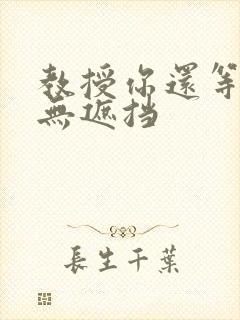 教授你還等
無遮挡
長生千葉